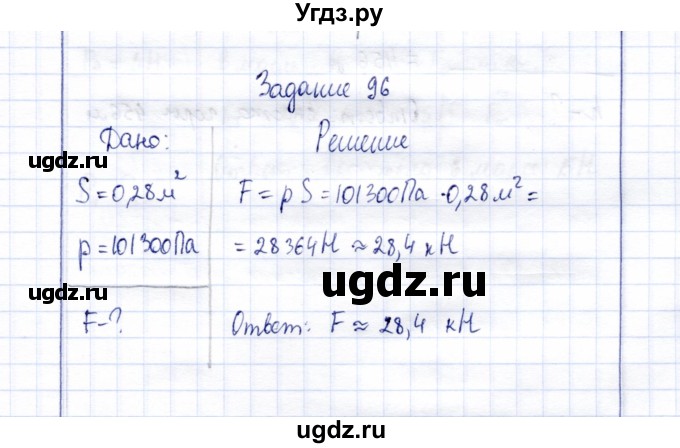 Угдз.ру
Задание 96
Дано:
Решение
ugdz.ru
ugdz.ru
S = 0,28 м²
F = p S = 101300 Па · 0,28 м² =
p = 101300 Па
= 28364 Н ≈ 28,4 кН
ugdz.ru
ugdz.ru
F - ?
Ответ: F ≈ 28,4 кН
ugdz.ru